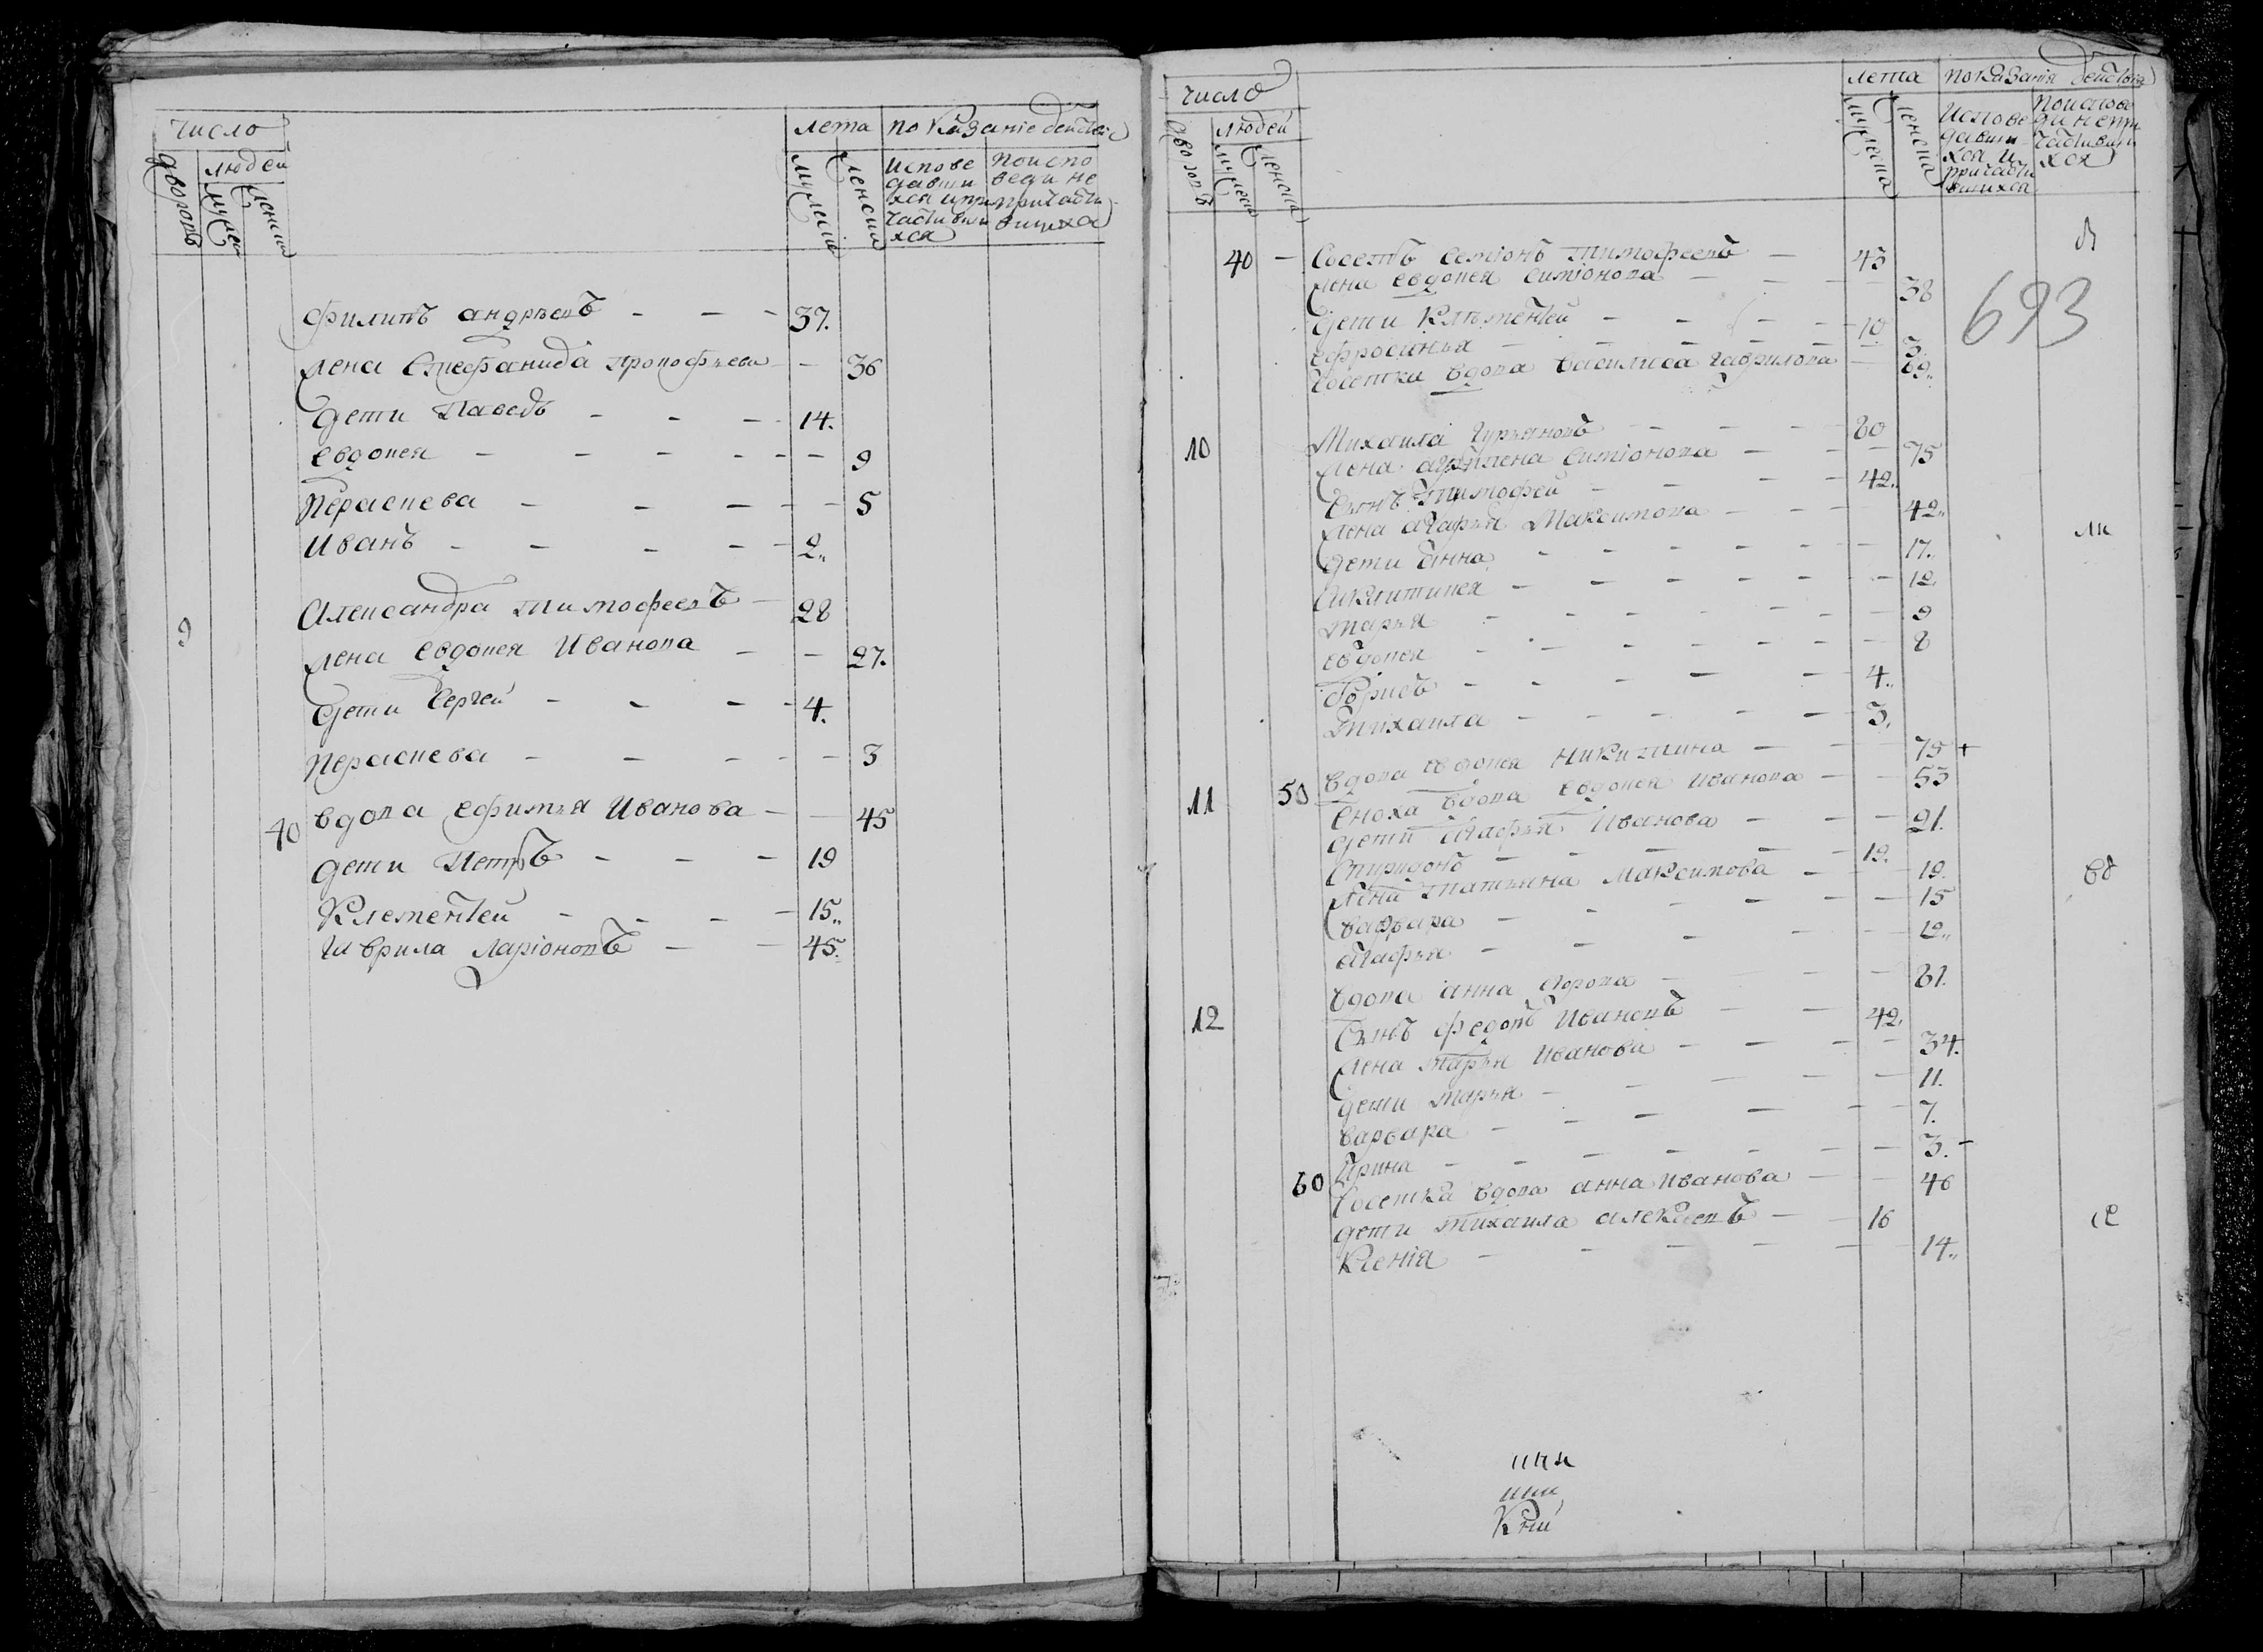 число
лета показаніе действ
дворовъ
людей
мужеск
женск
мужеска
женска
испове
давши
хся и при
частивши
хся
поиспо
веди не
причасти
вшихся
Филипъ андрѣевъ — — — 37.
жена Стефанида прокофьева — — 36
дети Павелъ — — — 14.
Евдокея — — — — — — 9
Параскева — — — — — 5
Иванъ — — — — — 2
9 Александра Тимофеевъ — 28
жена Евдокея Иванова — — 27.
дети Сергей — — — — 4.
Параскева — — — — — 3
40 вдова Ефимья Иванова — — 45
дети Петръ — — — 19
Клементей — — — — 15
Гаврила Ларіоновъ — — 45.
число
лета показанія действія
дворовъ
людей
мужеск
женска
мужеска
женска
Испове
давши
хся и
причасти
вшихся
поиспове
ди не при
частивши
хся
693
40 — Соседъ Семіонъ Тимофеевъ — 43
жена Евдокея Симіонова — — — 38
дети Клементей — — — — 10
Ефросинья — — — — — 3
Соседка вдова Василиса Гаврилова — 69
10 Михаила Гурьяновъ — — — 80
жена агрипена Симіонова — — — 75
Сынъ Тимофей — — — 42
жена агафья Максимова — — — 42
дети анна — — — — — — 17.
Сиклитинея — — — — — — 12.
Марья — — — — — — 9
Евдокея — — — — — — 8
Борисъ — — — — — 4
Михаила — — — — — 3.
вдова Евдокея Никитина — — — 75 +
11 50 Сноха вдова Евдокея Иванова — — 53
дети агафья Иванова — — — 21.
Спиридонъ — — — — 19.
жена Татьяна Максимова — — — 19.
варвара — — — — — — 15
агафья — — — — — 12
вдова анна — — — 61.
12 Сынъ Федотъ Ивановъ — — 42.
жена Марья Иванова — — — — 34.
дети Марья — — — — — 11.
варвара — — — — — 7.
Ирина — — — — — — 3. —
60 Соседка вдова анна Иванова — — 46
дети Михаила алексеевъ — — 16
Ксенія — — — — — 14